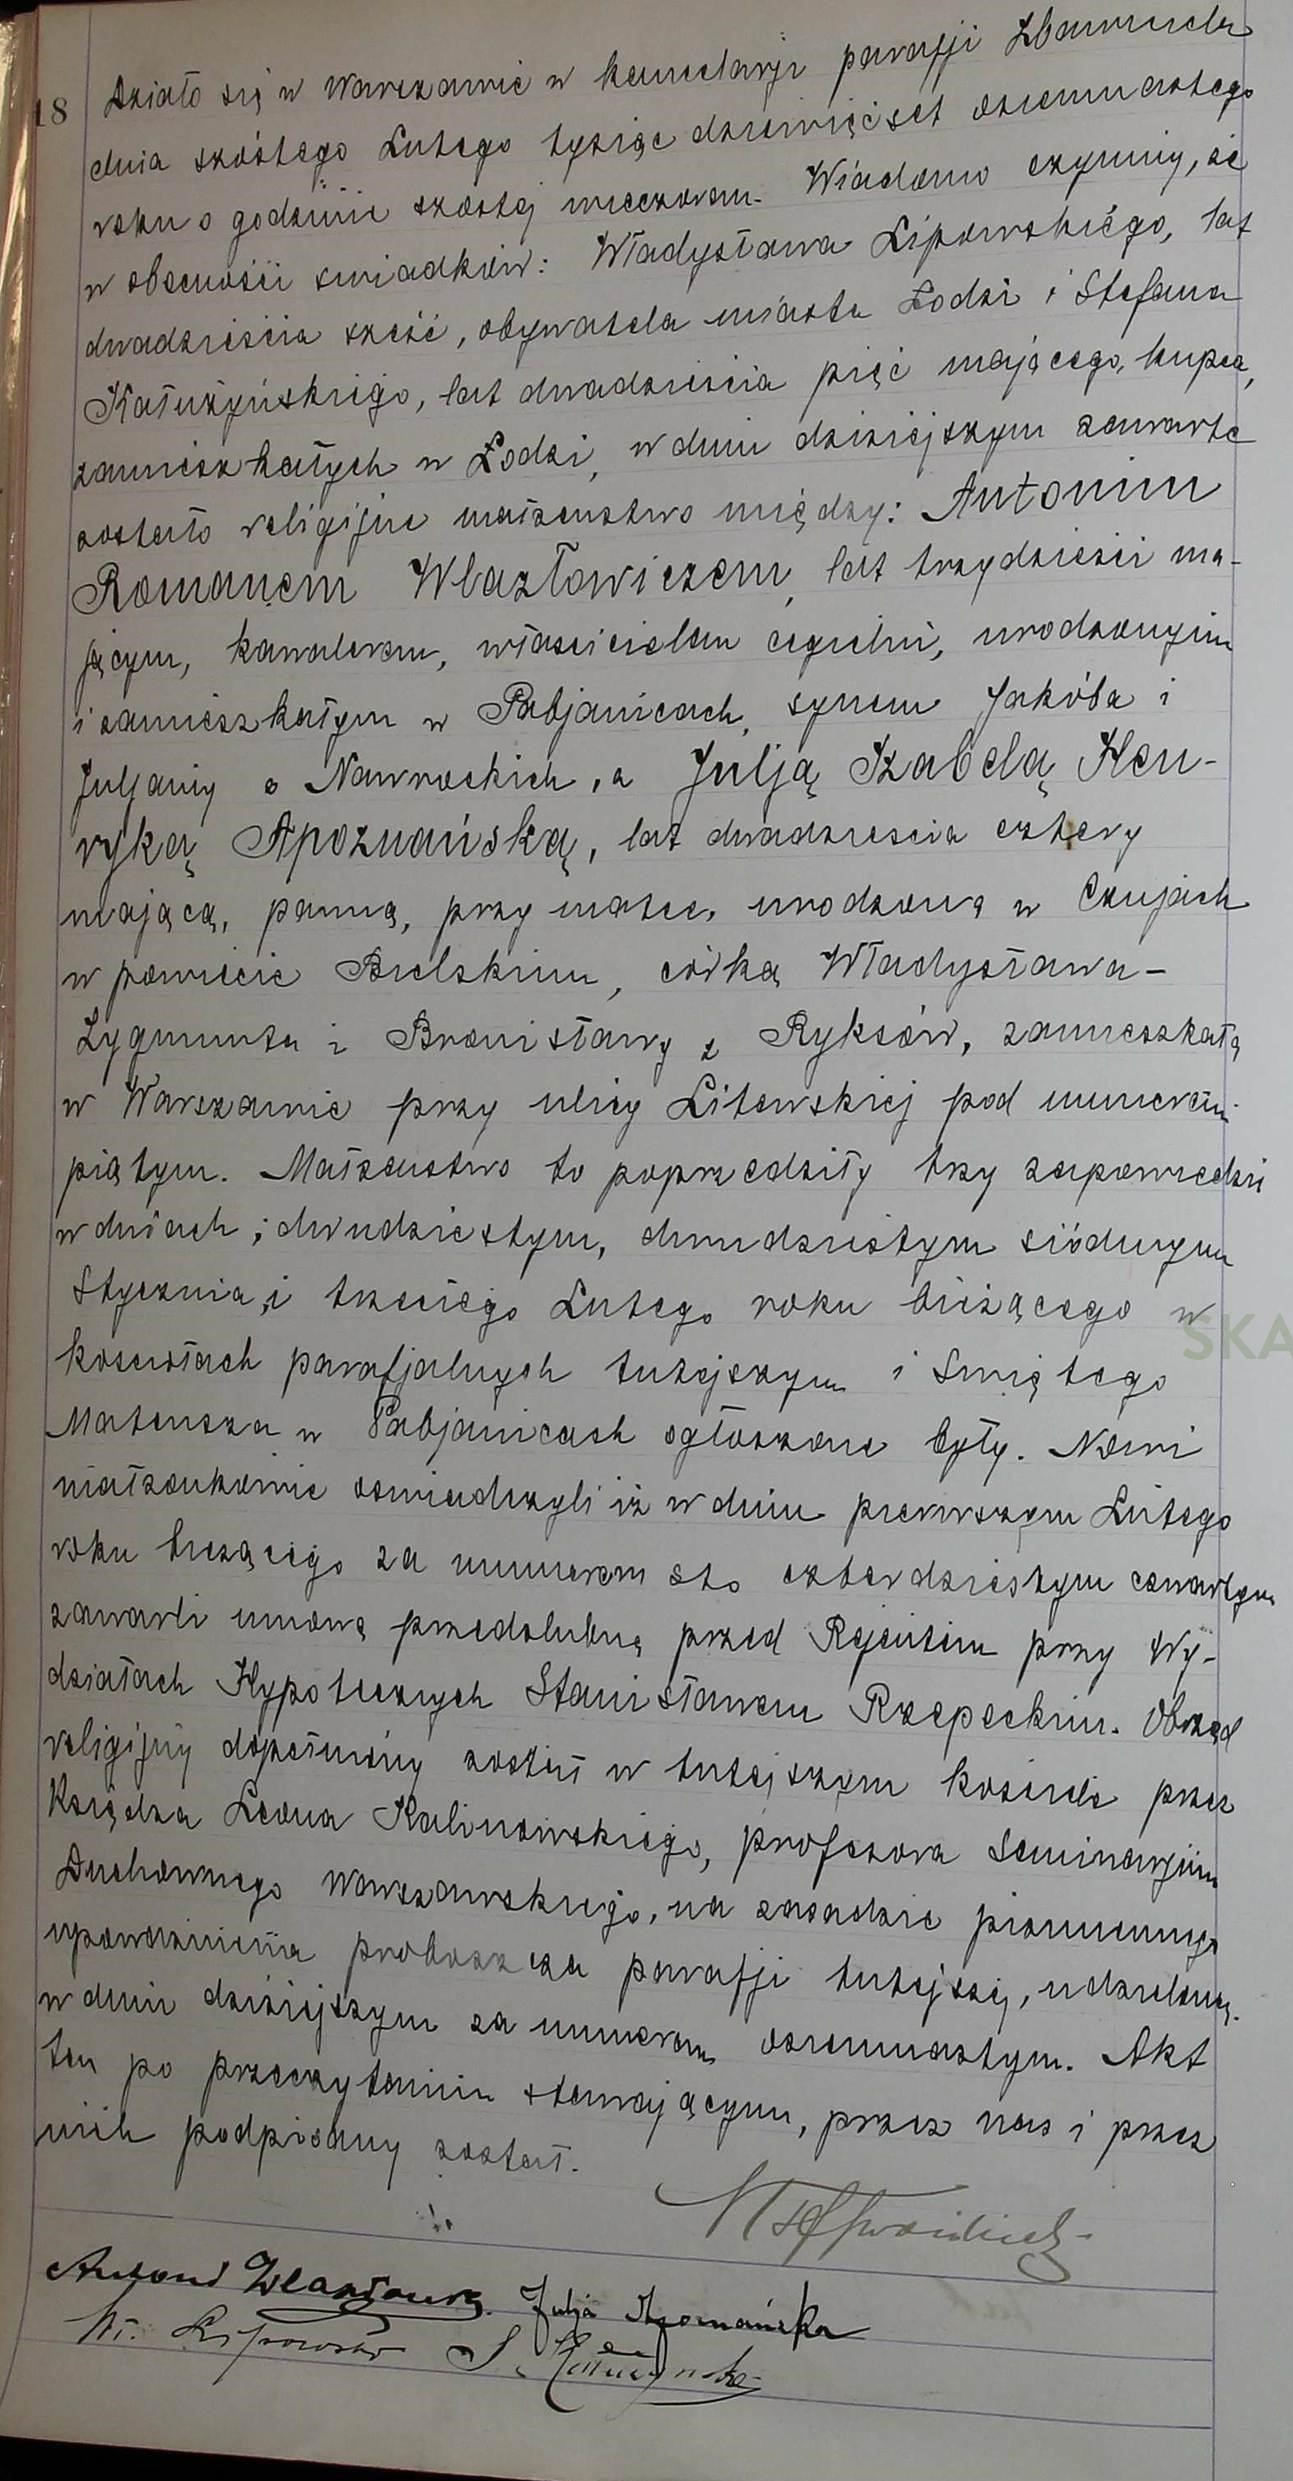 18
Działo się w Warszawie w kancelarji parafji Zbawiciela
dnia szóstego Lutego tysiąc dziewięćset osiemnastego
roku o godzinie szóstej wieczorem. Wiadomo czynimy, że
w obecności świadków: Władysława Lipowskiego, lat
dwadzieścia sześć, obywatela miasta Łodzi i Stefana
Kałużyńskiego, lat dwadzieścia pięć mającego, kupca,
zamieszkałych w Łodzi, w dniu dzisiejszym zawarte
zostało religijne małżeństwo między: Antonim
Romanem Wlazłowiczem, lat trzydzieści ma-
jącym, kawalerem, właścicielem cegielni, urodzonym
i zamieszkałym w Pabjanicach, synem Jakóba i
Juljanny z Nawrockich, a Julją Izabelą Hen-
ryką Apoznańską, lat dwadzieścia cztery
mającą, panną, przy matce, urodzoną w Czujach
w powiecie Bielskim, córką Władysława-
Zygmunta i Bronisławy z Ryksów, zamieszkałą
w Warszawie przy ulicy Litewskiej pod numerem
piątym. Małżeństwo to poprzedziły trzy zapowiedzi
w dniach; dwudziestym, dwudziestym siódmym
Stycznia, i trzeciego Lutego roku bieżącego w
kościołach parafjalnych tutejszym i Świętego
Mateusza w Pabjanicach ogłoszone były. Nowi
małżonkowie oświadczyli iż w dniu pierwszym Lutego
roku bieżącego za numerem sto czterdziestym czwartym
zawarli umowę przedślubną przed Rejentem przy Wy-
działach Hypotecznych Stanisławem Rzepeckim. Obrzęd
religijny dopełniony został w tutejszym kościele przez
Księdza Leona Kalinowskiego, profesora Seminarjum
Duchownego Warszawskiego, na zasadzie piśmiennego
upoważnienia proboszcza parafji tutejszej, udzielonego
w dniu dzisiejszym za numerem osiemnastym. Akt
ten po przeczytaniu stawającym, przez nas i przez
nich podpisany został.
Antoni Wlazłowicz. Julja Apoznańska
Wł. Lipowski S. Kałużyński
SKA